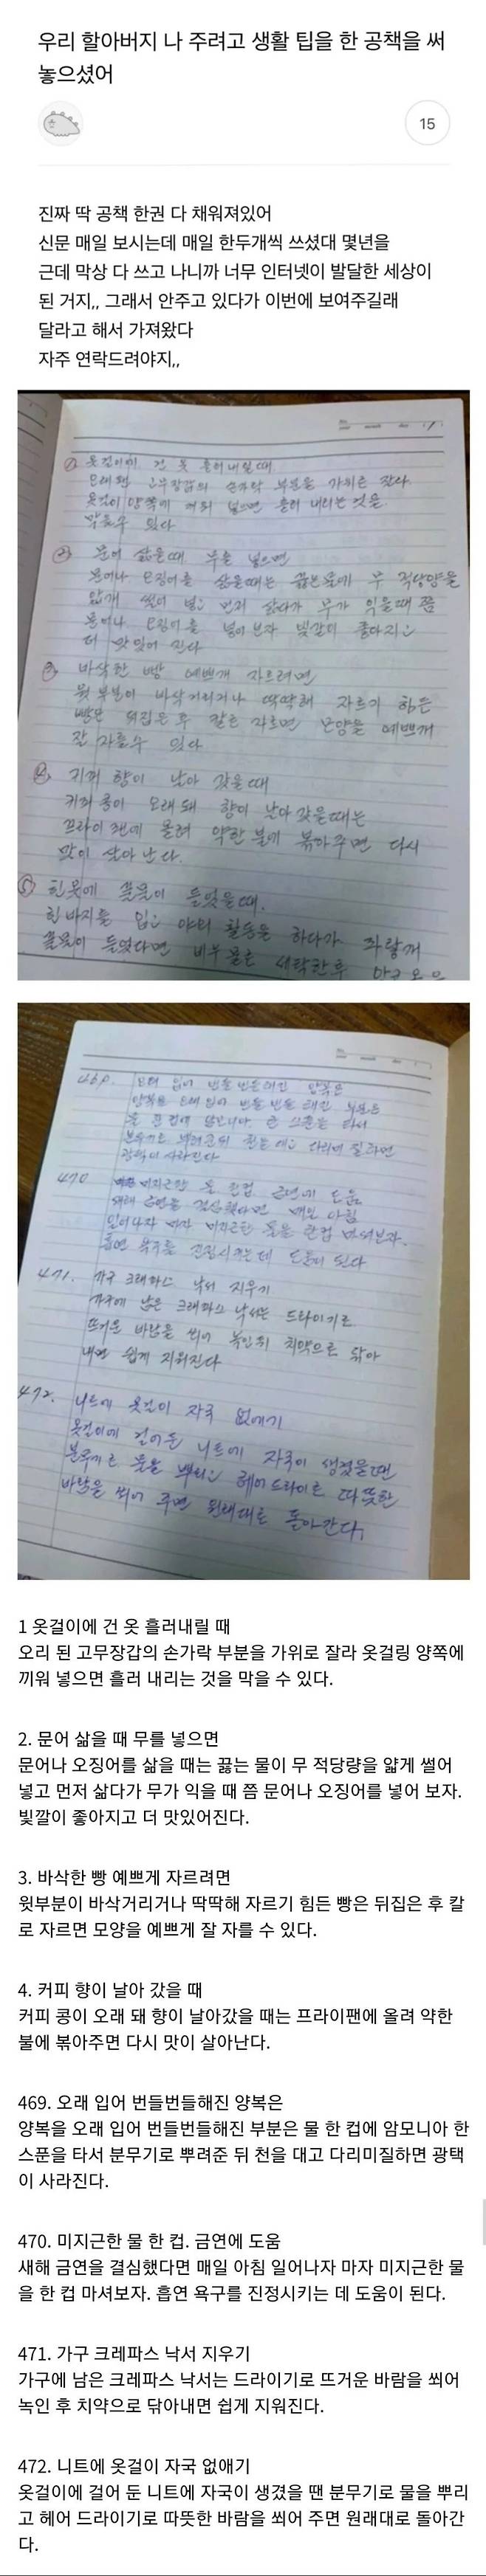 우리 할아버지 나 주려고 생활 팁을 한 공책을 써
놓으셨어
15
진짜 딱 공책 한권 다 채워져있어
신문 매일 보시는데 매일 한두개씩 쓰셨대 몇년을
근데 막상 다 쓰고 나니까 너무 인터넷이 발달한 세상이
된 거지,, 그래서 안주고 있다가 이번에 보여주길래
달라고 해서 가져왔다
자주 연락드려야지,,
① 옷걸이에 건 옷 흘러내릴때
오래됀 고무장갑의 손가락 부분을 가위로 잘라
옷걸이 양쪽에 끼워 넣으면 흘러 내리는것을
막을수 있다
② 문어 삶을때 무를 넣으면
문어나 오징어를 삶을때는 끓는물에 무 적당양을
얇개 썰어 넣고 먼저 삶다가 무가 익을때 쯤
문어나 오징어를 넣어 보자 빛갈이 좋아지고
더 맛있어 진다
③ 바삭한 빵 예쁘개 자르려면
윗부분이 바삭거리거나 딱딱해 자르기 힘든
빵은 뒤집은후 칼로 자르면 모양을 예쁘개
잘 자를수 있다
④ 커피 향이 날아 갔을때
커피콩이 오래돼 향이 날아 갔을때는
프라이팬에 올려 약한 불에 볶아주면 다시
맛이 살아난다.
⑤ 흰옷에 풀물이 들었을때.
흰바지를 입고 야외 활동을 하다가 파랗개
풀물이 들었다면 비누물로 세탁한후
469. 오래 입어 번들번들해진 양복은
양복을 오래입어 번들번들해진 부분은
물 한컵에 암모니아 한 스푼을 타서
분무기로 뿌려준뒤 천을 대고 다리미질하면
광택이 사라진다
470 미지근한 물 한컵 금연에 도움
새해 금연을 결심했다면 매일 아침
일어나자 마자 미지근한 물을 한컵 마셔보자.
흡연 욕구를 진정시키는데 도움이 된다
471. 가구 크래파스 낙서 지우기
가구에 남은 크래파스 낙서는 드라이기로
뜨거운 바람을 쐬어 녹인뒤 치약으로 닦아
내면 쉽게 지워진다
472. 니트에 옷걸이 자국 없애기
옷걸이에 걸어둔 니트에 자국이 생겼을땐
분무기로 물을 뿌리고 헤어드라이로 따뜻한
바람을 쐬어 주면 원래대로 돌아간다.
1 옷걸이에 건 옷 흘러내릴 때
오리 된 고무장갑의 손가락 부분을 가위로 잘라 옷걸링 양쪽에
끼워 넣으면 흘러 내리는 것을 막을 수 있다.
2. 문어 삶을 때 무를 넣으면
문어나 오징어를 삶을 때는 끓는 물이 무 적당량을 얇게 썰어
넣고 먼저 삶다가 무가 익을 때 쯤 문어나 오징어를 넣어 보자.
빛깔이 좋아지고 더 맛있어진다.
3. 바삭한 빵 예쁘게 자르려면
윗부분이 바삭거리거나 딱딱해 자르기 힘든 빵은 뒤집은 후 칼
로 자르면 모양을 예쁘게 잘 자를 수 있다.
4. 커피 향이 날아 갔을 때
커피 콩이 오래 돼 향이 날아갔을 때는 프라이팬에 올려 약한
불에 볶아주면 다시 맛이 살아난다.
469. 오래 입어 번들번들해진 양복은
양복을 오래 입어 번들번들해진 부분은 물 한 컵에 암모니아 한
스푼을 타서 분무기로 뿌려준 뒤 천을 대고 다리미질하면 광택
이 사라진다.
470. 미지근한 물 한 컵. 금연에 도움
새해 금연을 결심했다면 매일 아침 일어나자 마자 미지근한 물
을 한 컵 마셔보자. 흡연 욕구를 진정시키는 데 도움이 된다.
471. 가구 크레파스 낙서 지우기
가구에 남은 크레파스 낙서는 드라이기로 뜨거운 바람을 쐬어
녹인 후 치약으로 닦아내면 쉽게 지워진다.
472. 니트에 옷걸이 자국 없애기
옷걸이에 걸어 둔 니트에 자국이 생겼을 땐 분무기로 물을 뿌리
고 헤어 드라이기로 따뜻한 바람을 쐬어 주면 원래대로 돌아간
다.